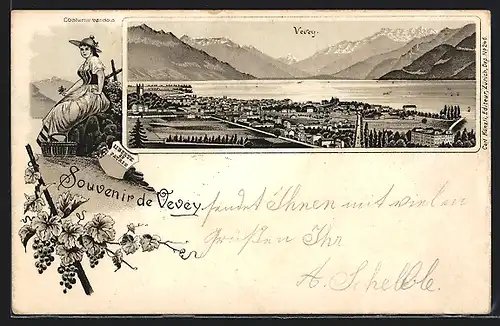 Costume vaudois
Vevey.
LIBERTÉ
PATRIE
Souvenir de Vevey.
sendet Ihnen mit vielen
Grüßen Ihr
A. Schelble.
Carl Künzli, Editeur, Zürich, Dep. No 246.